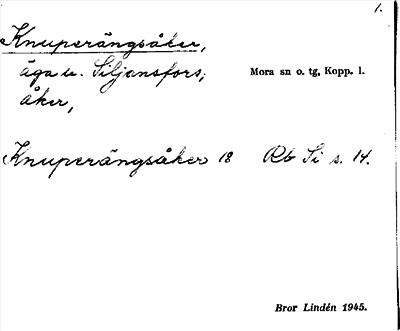 1.
Knuperängsåker,
äga u. Siljansfors;
åker,
Mora sn o. tg, Kopp. l.
Knuperängsåker 18 Rb Si s. 14.
Bror Lindén 1945.